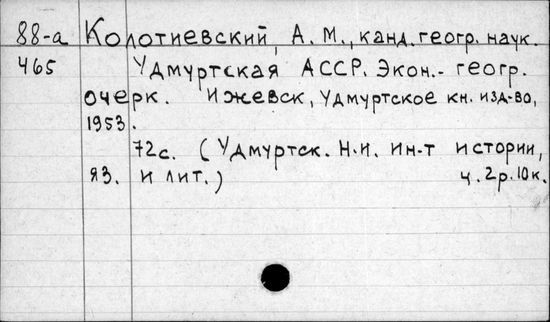 88-а Колотиевский, А. М., канд. геогр. наук.
465 Удмуртская АССР. Экон.- геогр.
очерк. Ижевск, Удмуртское кн. изд-во,
1953.
72с. (Удмуртск. Н.и. ин-т истории,
яз. и лит.) ц. 2р. 10к.